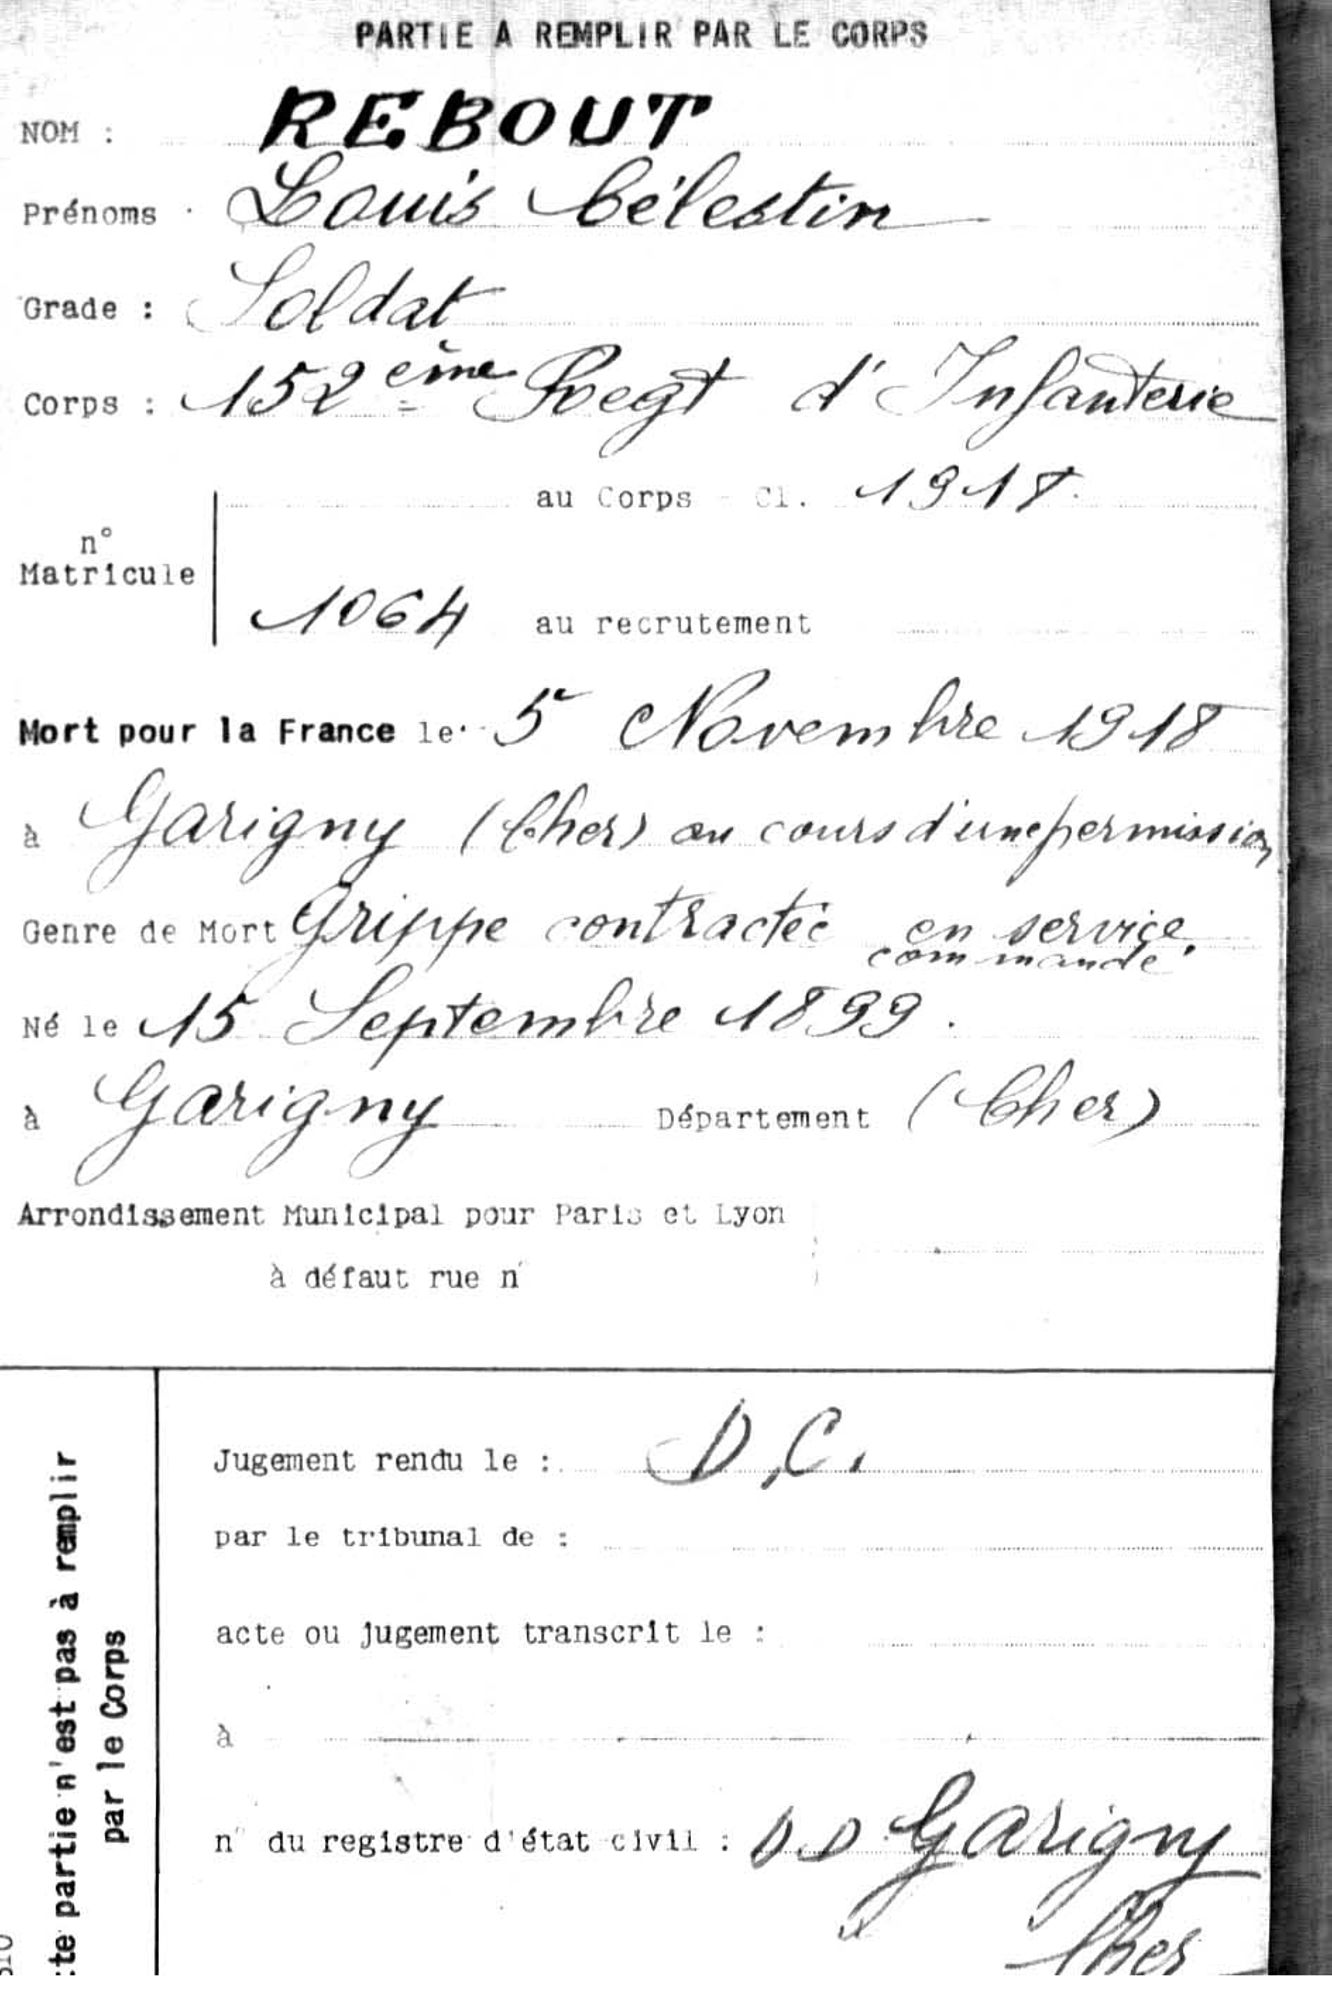 PARTIE A REMPLIR PAR LE CORPS
NOM : REBOUT
Prénoms Louis Célestin
Grade : Soldat
Corps : 152ème Regt d'Infanterie
au Corps - Cl. 1918
n°
Matricule
1064 au recrutement
Mort pour la France le 5 Novembre 1918
à Garigny (Cher) au cours d'une permission
Genre de Mort Grippe contractée en service
commandé.
Né le 15 Septembre 1899.
à Garigny Département (Cher)
Arrondissement Municipal pour Paris et Lyon
à défaut rue n°
Jugement rendu le : D.C.
par le tribunal de :
acte ou jugement transcrit le :
à
n° du registre d'état civil : Garigny
Cher
te partie n'est pas à remplir
par le Corps